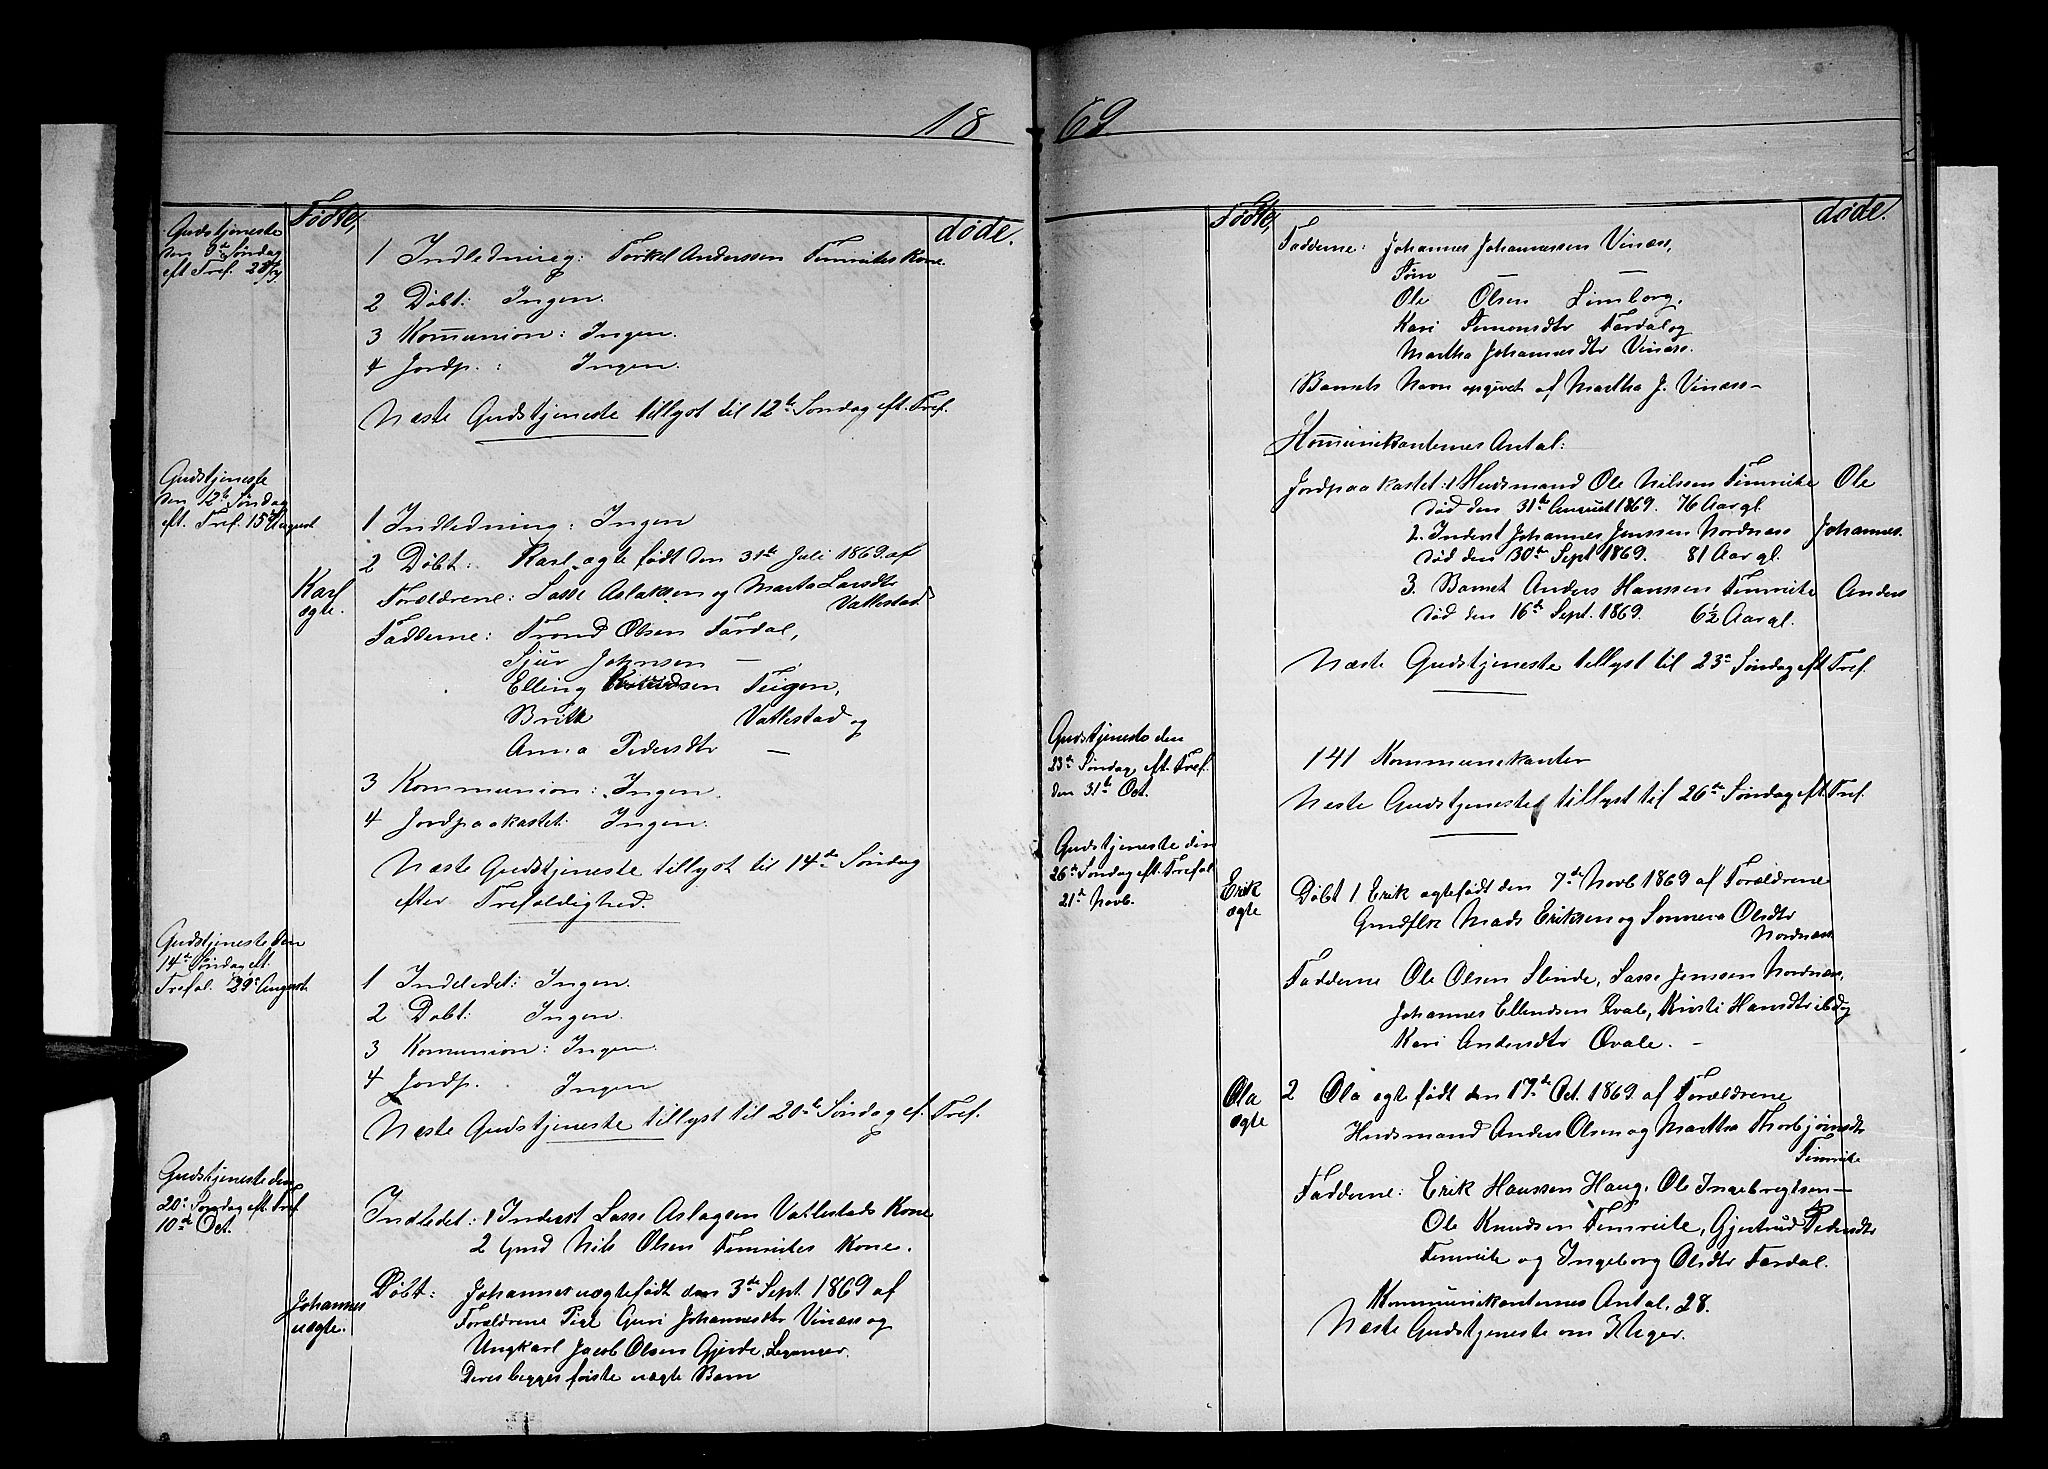 1869
Fødte,
døde.
Gudstjeneste
den Søndag
eft Tref.
1 Indledning: Torkel Anderssen Timreites Kone
2 Døbt: Ingen.
3 Kommunion: Ingen.
4 Jordp.: Ingen.
Næste Gudstjeneste tillyst til 12te Søndag eft. Tref.
Gudstjeneste
den 12te Søndag
eft. Tref. 15de August
1 Indledning: Ingen
Karl
ægte.
2 Døbt: Karl ægte født den 31te Juli 1869 af
Forældrene: Lasse Aslaksen og Marta Larsdtr
Vallestad
Fadderne: Trond Olsen Fardal,
Sjur Johnsen —
Elling Knudsen Teigen,
Vallestad og
Anna Pedersdtr —
3 Kommunion: Ingen.
4 Jordpaakastet: Ingen.
Næste Gudstjeneste tillyst til 14de Søndag
efter Trefoldighed.
Gudstjeneste den
14de Søndag eft.
Trefol. 29de August
1 Indledet: Ingen.
2 Døbt: Ingen.
3 Komunion: Ingen.
4 Jordp. Ingen
Næste Gudstjeneste tillyst til 20de Søndag ef. Tref.
Gudstjeneste den
20de Søndag eft. Tref
10de Oct.
Indledet: 1 Inderst Lasse Aslagsen Vallestads Kone
2 Gmd Nils Olsen Timreites Kone.
Johannes
uægte.
Døbt: Johannes uægte født den 3de Sept 1869 af
Forældrene Pige Guri Johannesdtr Vinæss og
Ungkarl Jacob Olsen Gjerde, Leganger.
Deres begges første uægte Barn
Fødte,
døde.
Fadderne: Johannes Johannessen Vinæss,
— —
Ole Olsen Limborg,
Kari Simonsdtr Fardal og
Martha Johannesdtr Vinæss.
Barnets Navn opgivet af Martha J. Vinæss —
Kommunikanternes Antal:
Jordpaakastet: 1 Husmand Ole Nilssen Timreite Ole
død den 31te August 1869. 76 Aar gl.
2. Inderst Johannes Jenssen Nordnæss Johannes.
død den 30te Sept 1869. 81 Aar gl.
3. Barnet Anders Hanssen Timreite Anders
død den 16de Sept. 1869. 6½ Aar gl.
Næste Gudstjeneste tillyst til 23de Søndag eft Tref.
Gudstjeneste den
23de Søndag eft. Tref.
den 31te Oct.
141 Kommunikanter
Næste Gudstjeneste tillyst til 26de Søndag eft. Tref.
Gudstjeneste den
26de Søndag eft. Trefol
21de Novb.
Erik
ægte
Døbt 1 Erik ægte født den 7de Novb 1869 af Forældrene
Mads Eriksen og Sønneva Olsdtr
Nordnæss
Fadderne Ole Olsen Slinde, Lasse Jenssen Nordnæss,
Johannes Ellendsen Øvale, Kristi Hansdtr ibd og
Kari Andersdtr Øvale. —
Ola
ægte
2 Ola ægte født den 17de Oct. 1869 af Forældrene
Husmand Anders Olsen og Martha Thorbjørnsdtr
Timreite
Fadderne: Erik Hanssen Haug, Ole Ingebregtsen —
Ole Knudsen Timreite, Gjertrud Pedersdtr
Timreite og Ingeborg Olsdtr Fardal.
Kommunikanternes Antal, 28.
Næste Gudstjeneste om 3 Uger.